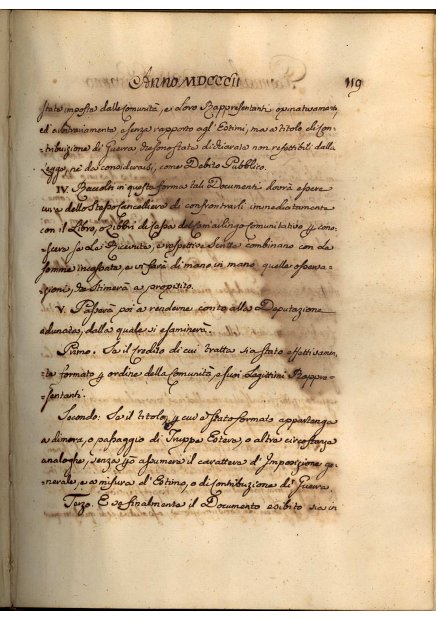 Anno MDCCCII 119
state imposte dalle Comunità, e loro Rappresentanti ordinativamente
ed arbitrariamente, e senza rapporto agl'Estimi, ma a titolo di Con-
tribuzione di Guerra che sono state dichiarate non refettibili dalla
Legge, nè da considerarsi, come Debito Pubblico.
IV. Raccolti in questa forma tali Documenti dovrà essere
cura dello stesso Cancelliere di confrontarli immediatamente
con il Libro, o Libri di Cassa del Camarlingo Comunitativo p cono-
scere se Le Ricevute, e rispettive Scritte combinano con Le
Somme incassate, e vi farà di mano in mano quelle osserva-
zioni, che stimerà a proposito.
V. Passerà poi a renderne conto alla Deputazione
adunata, dalla quale si esaminerà.
Primo. Se il Credito di cui tratta sia stato effettivamen-
te formato p ordine della Comunità, e suoi Legittimi Rappre-
sentanti.
Secondo: Se il titolo, p cui è stato formato appartenga
a dimora, o passaggio di Truppa Estera, o altre circostanze
analoghe, senza però assumere il carattere d'Imposizione ge-
nerale, e a misura d'Estimo, o di Contribuzione di Guerra.
Terzo. E se finalmente il Documento esibito sia in